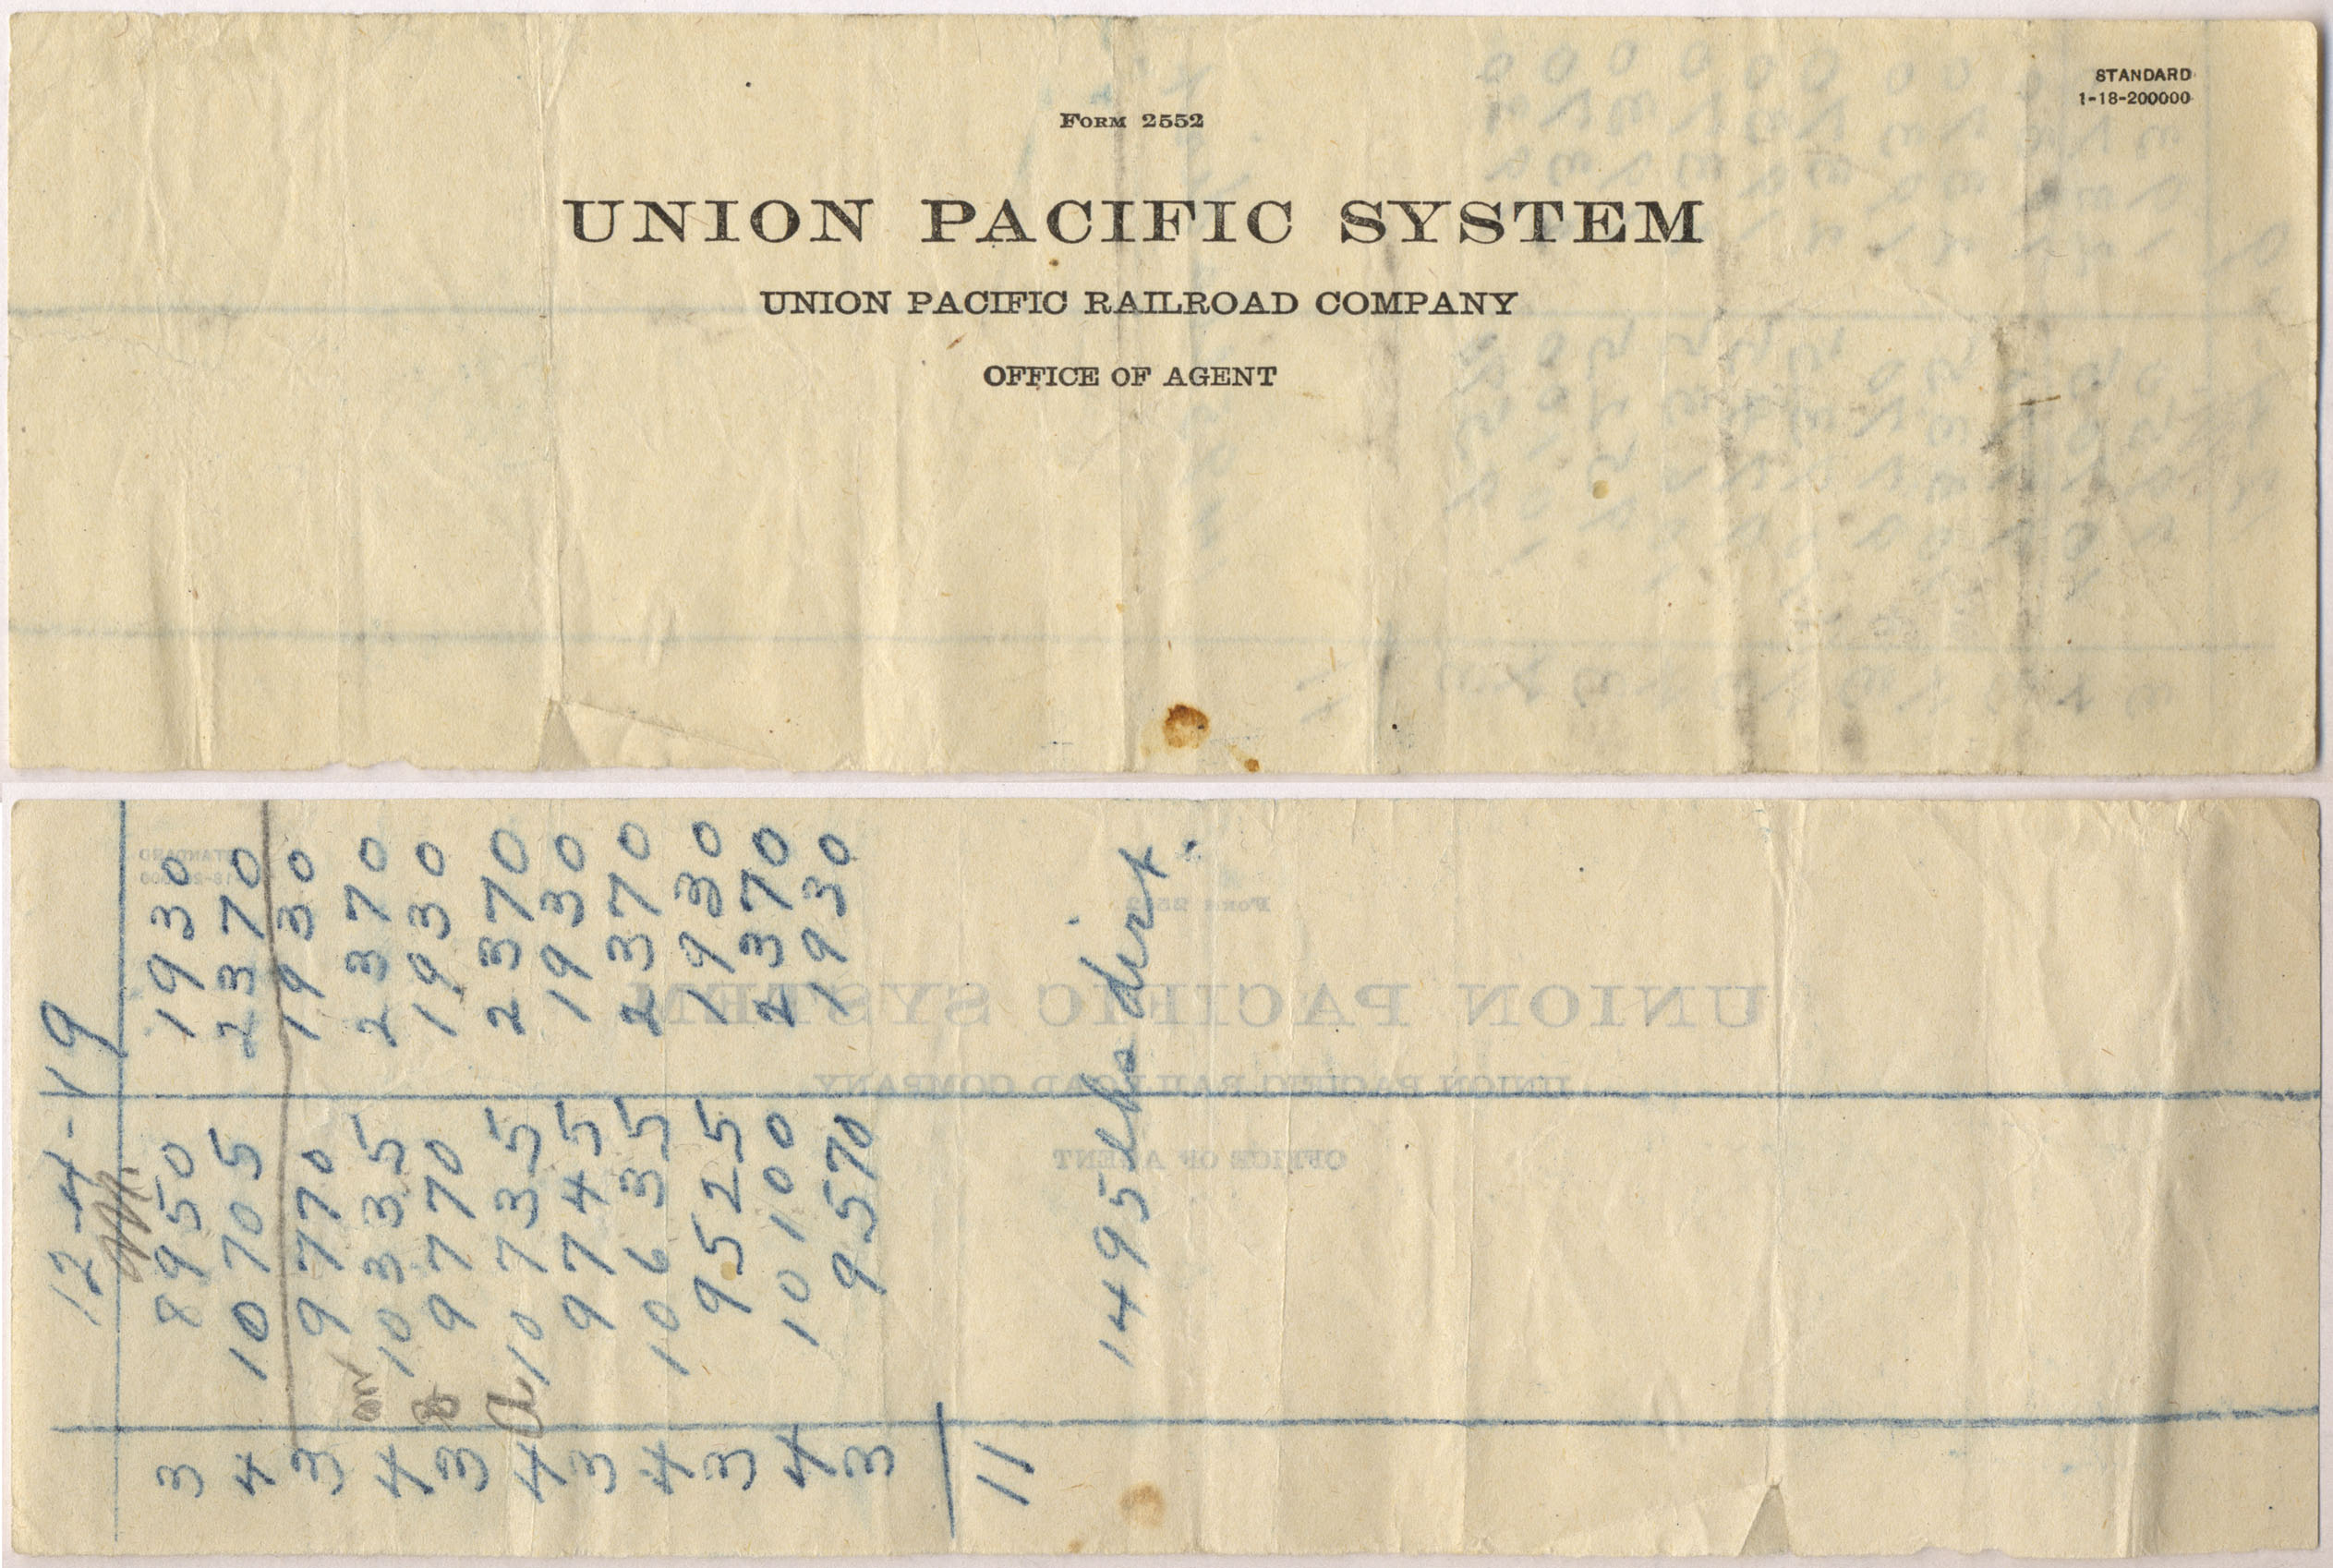 STANDARD
1-18-200000
FORM 2552
UNION PACIFIC SYSTEM
UNION PACIFIC RAILROAD COMPANY
OFFICE OF AGENT
12-4-19
3 8950 1930
4 10705 2370
3 9770 1930
4 10335 2370
3 9770 1930
4 10735 2370
3 9745 1930
4 10635 2370
3 9525 1930
4 10100 2370
3 9570 1930
11
1495 dirt.